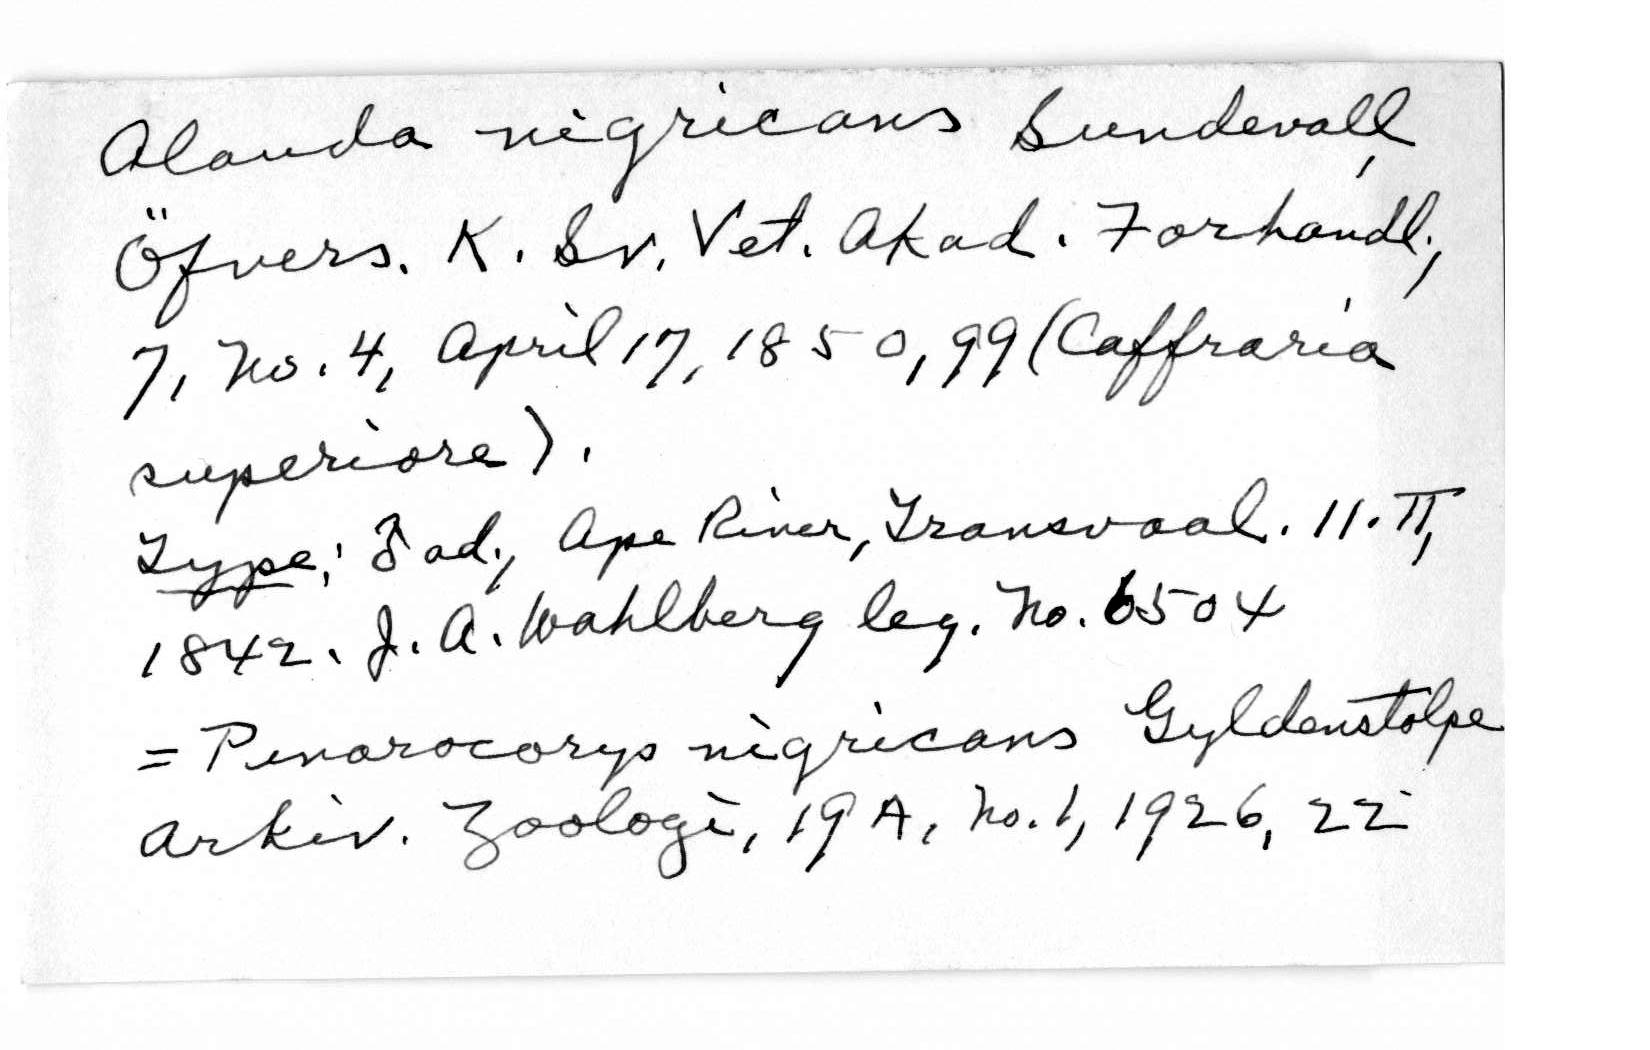 Alauda nigricans Sundevall,
Öfvers. K. Sv. Vet. Akad. Forhandl.,
7, No. 4, April 17, 1850, 99 (Caffraria
superiore).
Type: ♂ ad., Ape River, Transvaal. 11. II,
1842. J. A. Wahlberg leg. No. 6504
= Pinarocorys nigricans Gyldenstolpe
Arkiv. Zoologi, 19 A, No. 1, 1926, 22